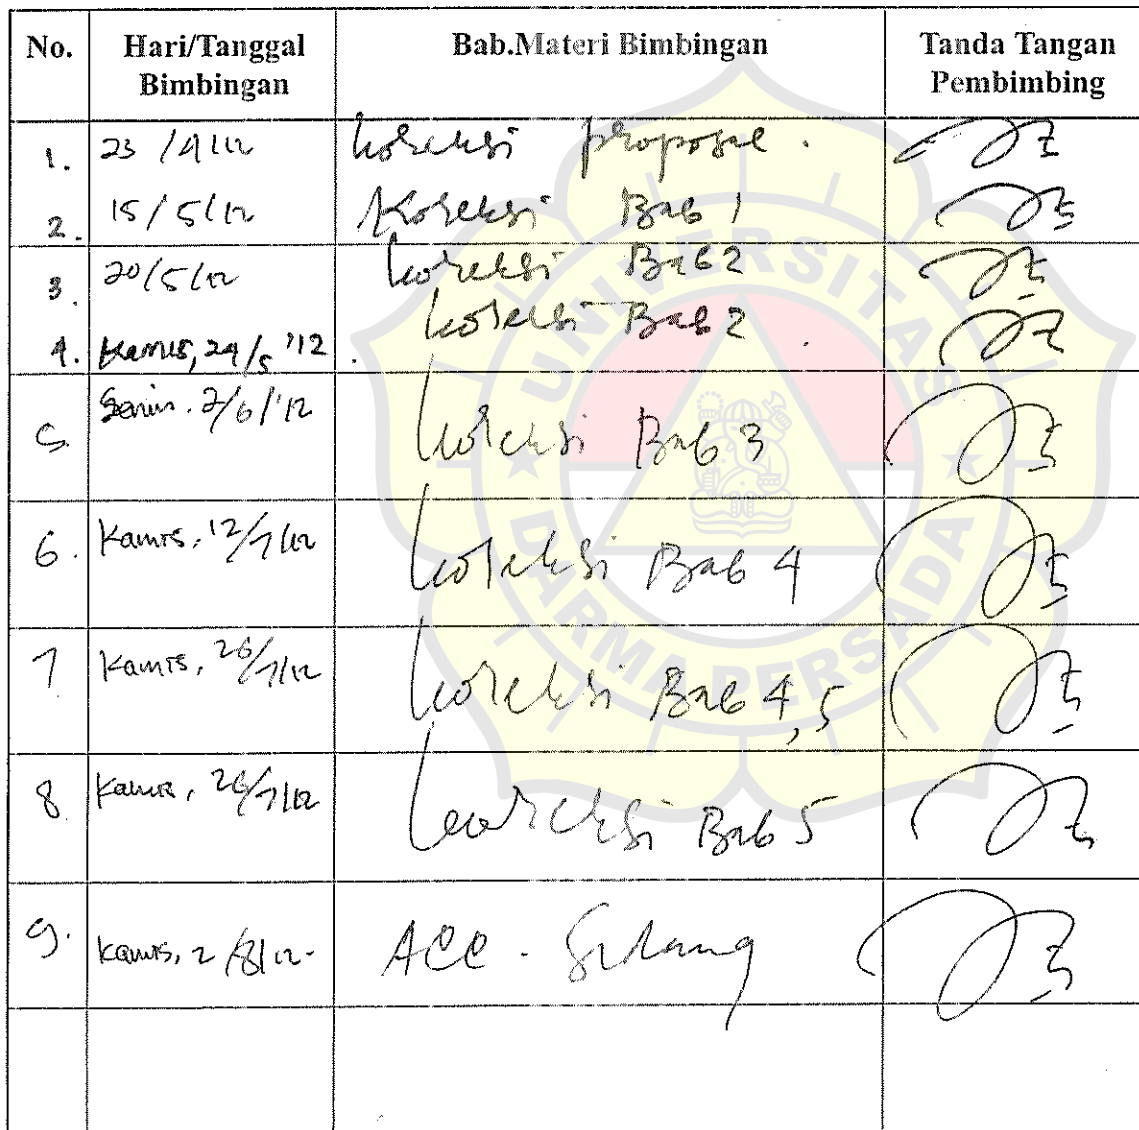 No. Hari/Tanggal Bimbingan Bab.Materi Bimbingan Tanda Tangan Pembimbing
1. 23/4/12 koreksi proposal.
2. 15/5/12 Koreksi Bab 1
3. 20/5/12 koreksi Bab 2
4. Kamis, 24/5 '12. koreksi Bab 2
5. Senin. 2/6/'12 koreksi Bab 3
6. Kamis, 12/7/12 koreksi Bab 4
7 Kamis, 26/7/12 koreksi Bab 4,5
8 Kamis, 26/7/12 koreksi Bab 5
9. Kamis, 2/8/12- ACC. Sidang
UNIVERSITAS
DARMA PERSADA